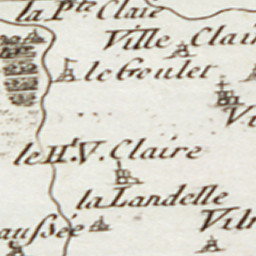 la P.te Clair
Ville Clai
le Goulet
Vi
le H.t V. Claire
la Landelle
Vil
aussée